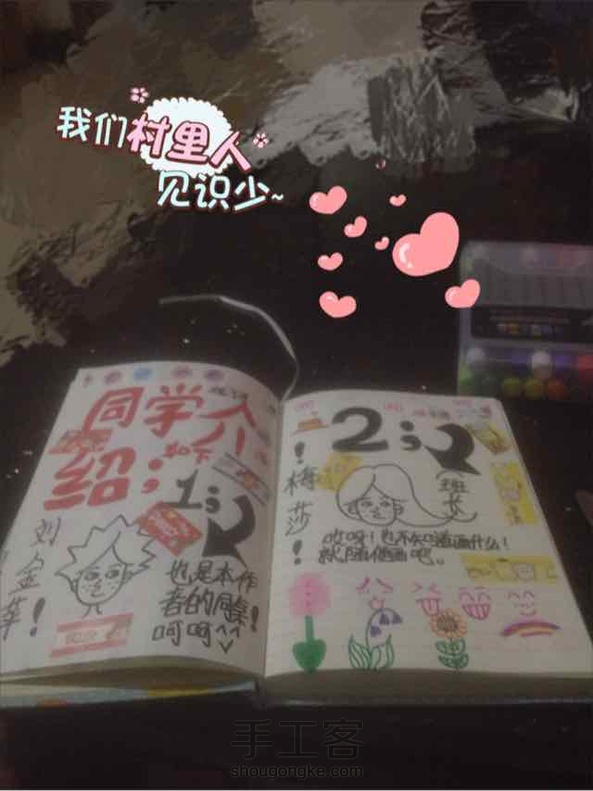 我们村里人
见识少~
同学介
绍；如下
1；
刘金苹！
也是本作
者的同桌！
呵呵^^
2；
！梅莎！
班长
哎呀！也不知道画什么！
就随便画吧。
手工客
shougongke.com